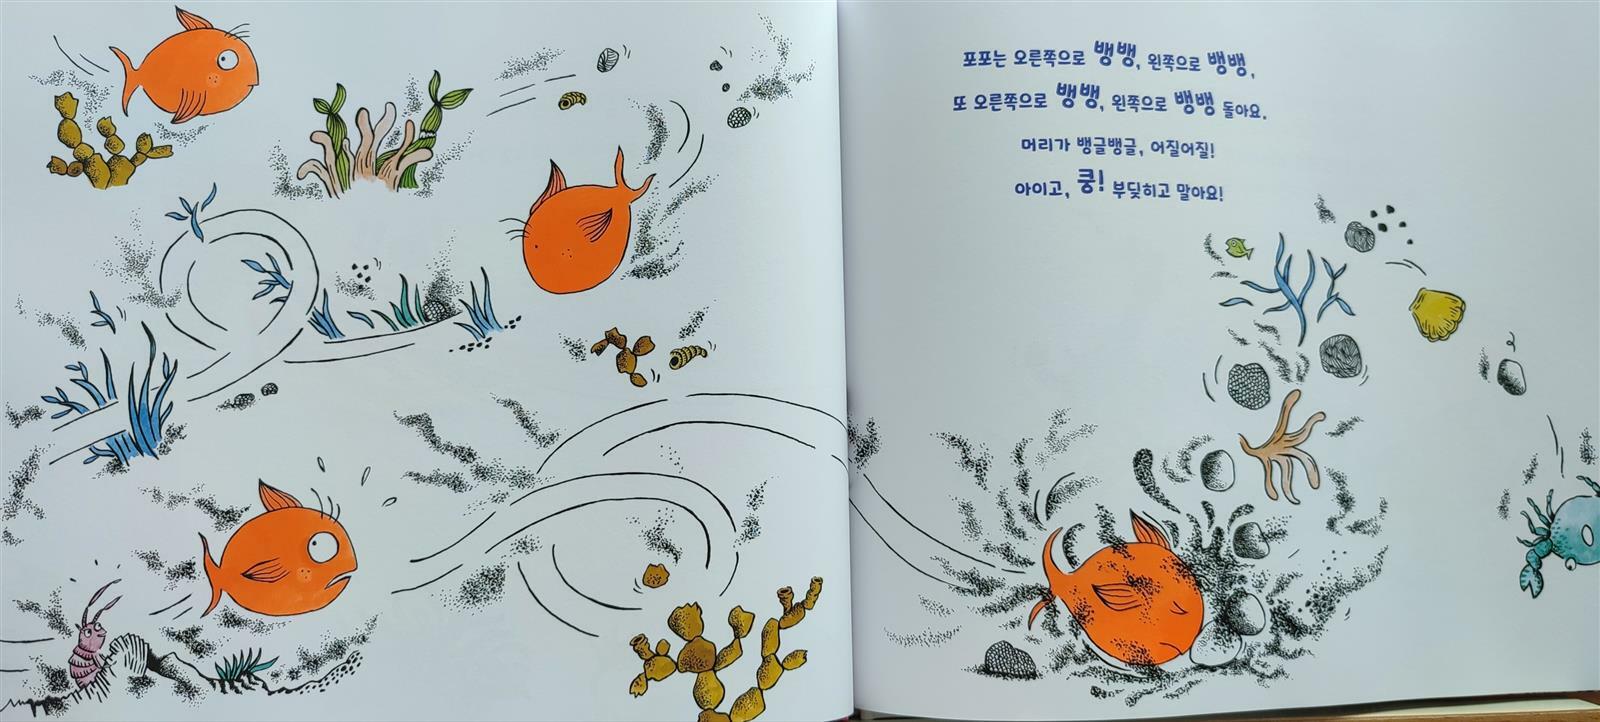 포포는 오른쪽으로 뱅뱅, 왼쪽으로 뱅뱅,
또 오른쪽으로 뱅뱅, 왼쪽으로 뱅뱅 돌아요.
머리가 뱅글뱅글, 어질어질!
아이고, 쿵! 부딪히고 말아요!